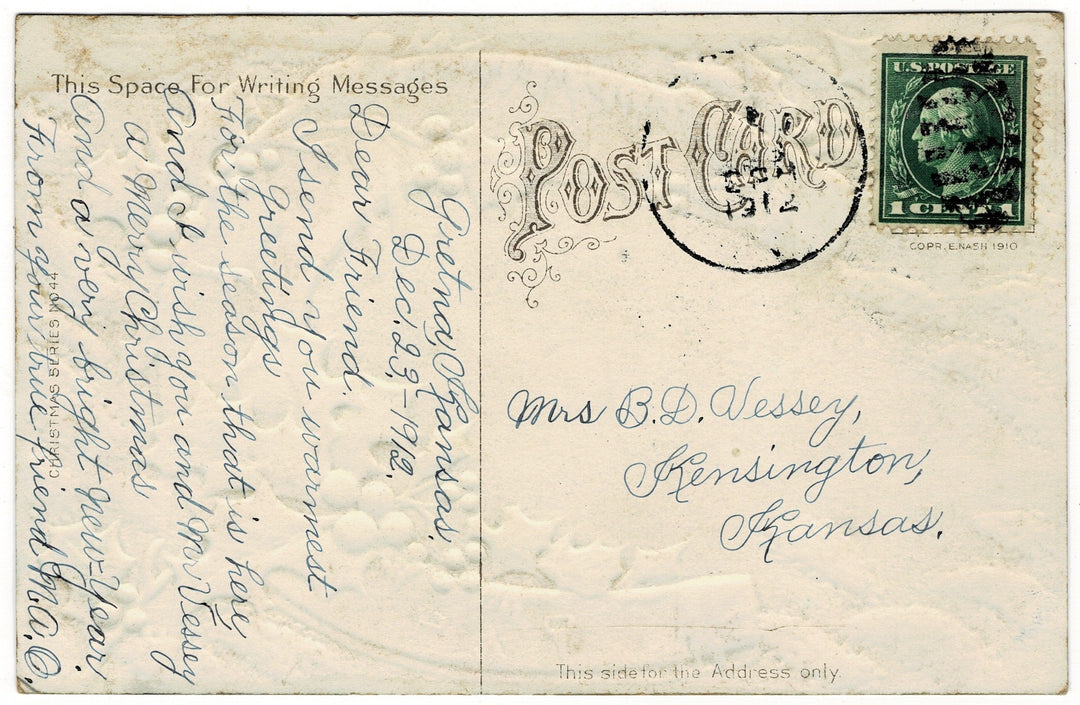 This Space For Writing Messages
Gretna, Kansas.
Dec. 23,-1912.
Dear Friend.
I send you warmest
Greetings
For the season that is here,
And I wish you and Mr Vessey
a Merry Christmas
And a very bright New-Year.
From your true friend M.A.O.
CHRISTMAS SERIES NO 44
POST CARD
1912
U.S. POSTAGE
1 CENT 1
COPR. E. NASH 1910
Mrs B.D. Vessey,
Kensington,
Kansas.
This side for the Address only.